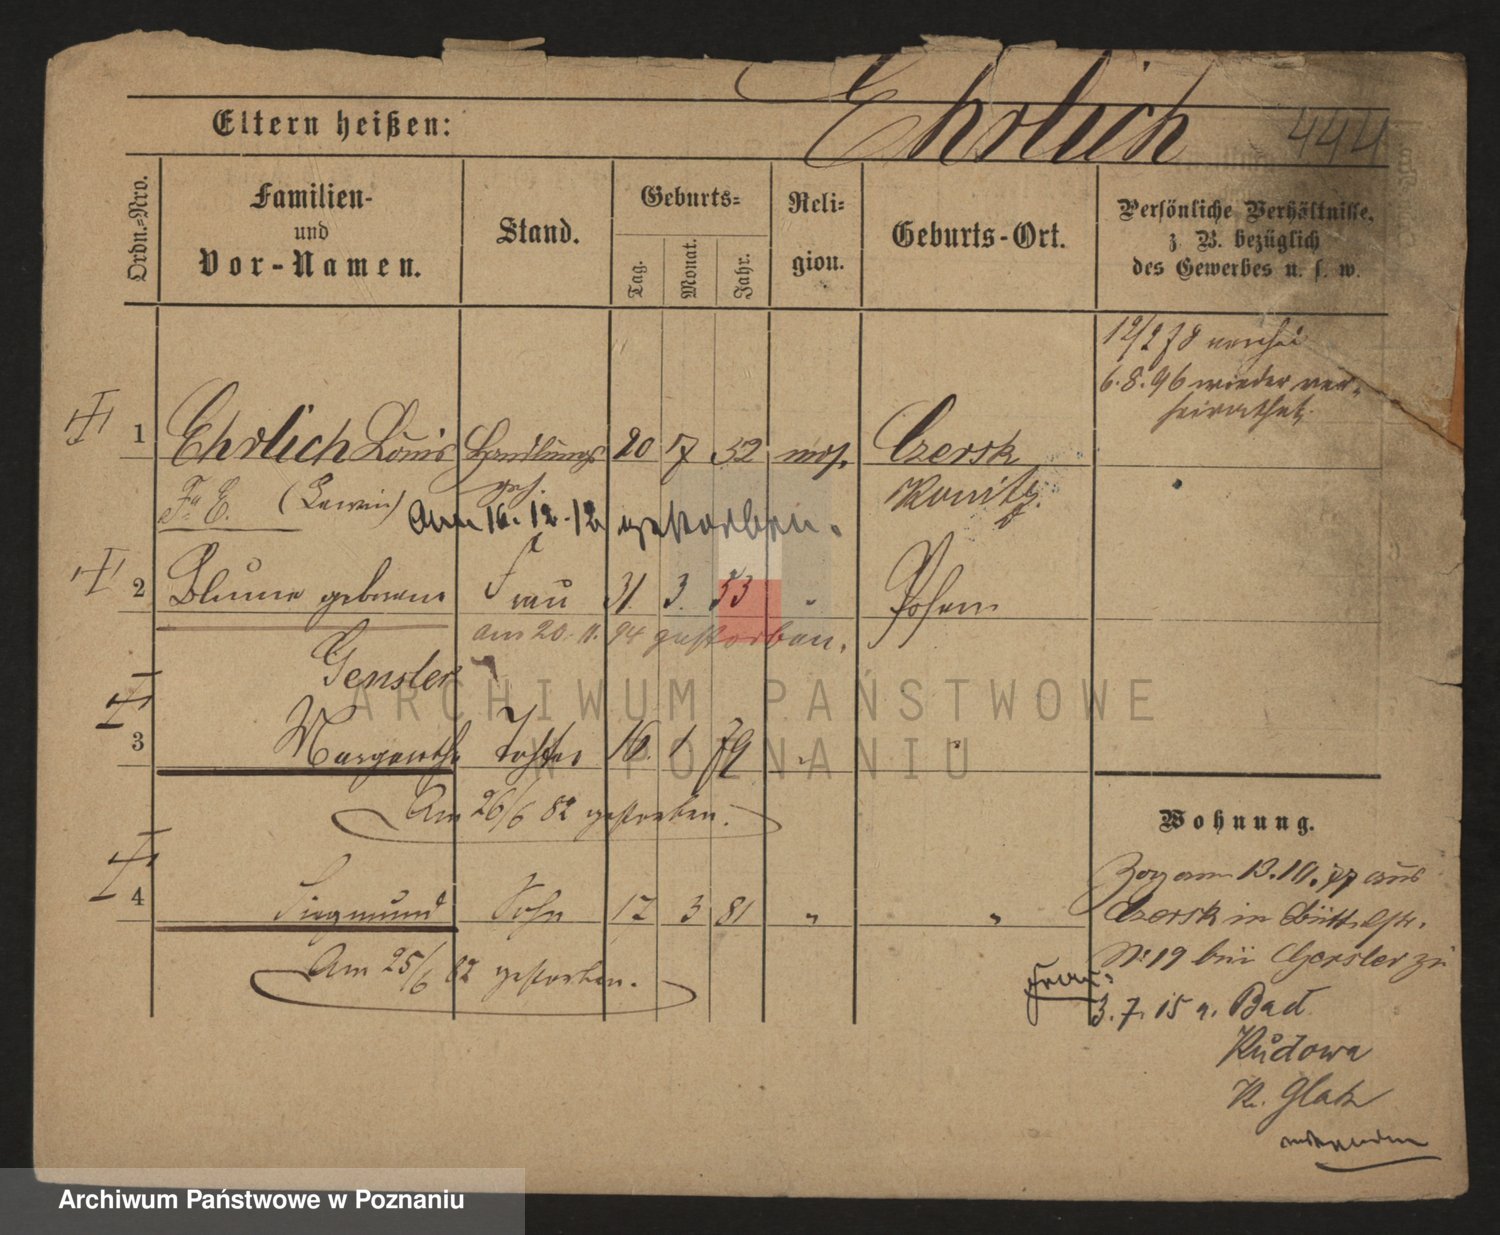 Ehrlich 444
Eltern heißen:
Ordn.=Nro.
Familien-
und
Vor-Namen.
Stand.
Geburts=
Tag.
Monat.
Jahr.
Reli=
gion.
Geburts-Ort.
Persönliche Verhältnisse,
z. B. bezüglich
des Gewerbes u. s. w.
6. 8. 96 wieder ver-
heirathet.
1 Ehrlich Louis Handlungs 20 17 52 mos. Czersk
(Lewin) Konitz.
am 16. 12. 12 gestorben.
2 Blume geborene Frau 31. 3. 53 " Posen
am 20. 11. 94 gestorben.
Gensler
3 Margarethe Tochter 16. 1 79 " "
Am 26/6 82 gestorben.
Wohnung.
4 Siegmund Sohn 12 3 81 " "
Am 25/6 82 gestorben.
Zog am 13. 10. 77 aus
Czersk in Büttelstr.
No 19 bei Gensler zu
Frau:
3. 7. 15 a. Bad
Kudowa
Kr. Glatz
ARCHIWUM PAŃSTWOWE
W POZNANIU
Archiwum Państwowe w Poznaniu